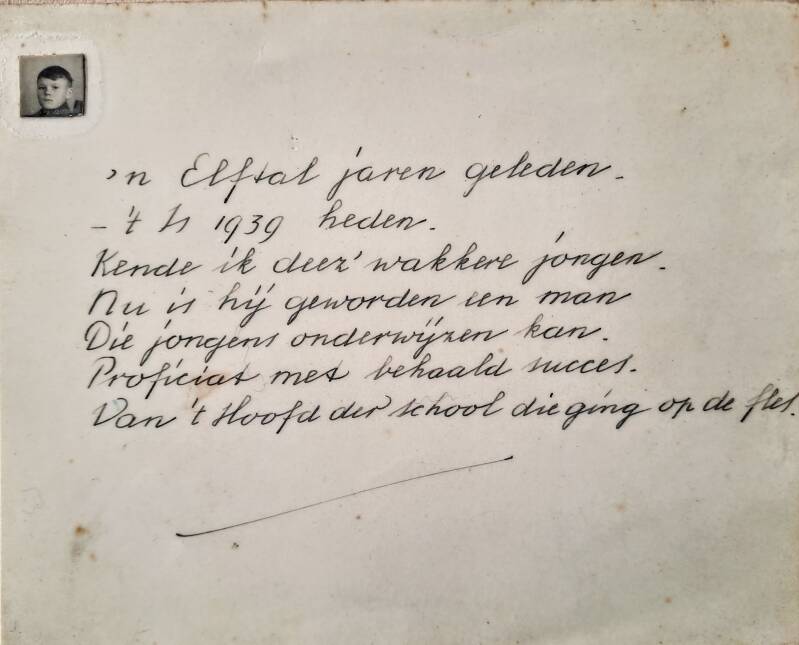 'n Elftal jaren geleden.
- 't Is 1939 heden.
Kende ik deez' wakkere jongen.
Nu is hij geworden een man
Die jongens onderwijzen kan.
Proficiat met behaald succes.
Van 't Hoofd der school die ging op de fles.